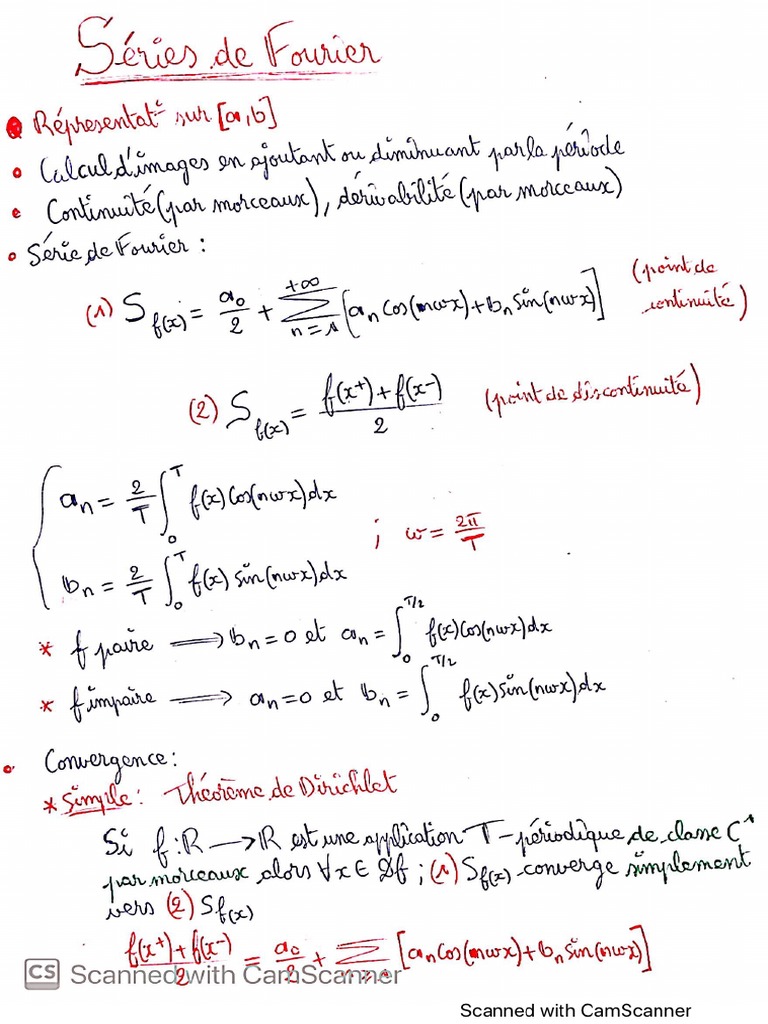 Séries de Fourier
Réprésentat° sur [a,b]
• Calcul d'images en ajoutant ou diminuant par la période
• Continuité (par morceaux), dérivabilité (par morceaux)
• Série de Fourier :
(1) S_f(x) = a₀/2 + Σ_{n=1}^{+∞} [aₙ cos(nωx) + bₙ sin(nωx)] (point de continuité)
(2) S_f(x) = (f(x⁺) + f(x⁻))/2 (point de discontinuité)
aₙ = 2/T ∫₀^T f(x) cos(nωx) dx
; ω = 2π/T
bₙ = 2/T ∫₀^T f(x) sin(nωx) dx
* f paire ⟹ bₙ = 0 et aₙ = ∫₀^{T/2} f(x) cos(nωx) dx
* f impaire ⟹ aₙ = 0 et bₙ = ∫₀^{T/2} f(x) sin(nωx) dx
• Convergence :
* Simple : Théorème de Dirichlet
Si f : R ⟶ R est une application T-périodique de classe C¹
par morceaux alors ∀x ∈ Df ; (1) S_f(x) converge simplement
vers (2) S_f(x)
(f(x⁺) + f(x⁻))/2 = a₀/2 + Σ [aₙ cos(nωx) + bₙ sin(nωx)]
CS Scanned with CamScanner
Scanned with CamScanner